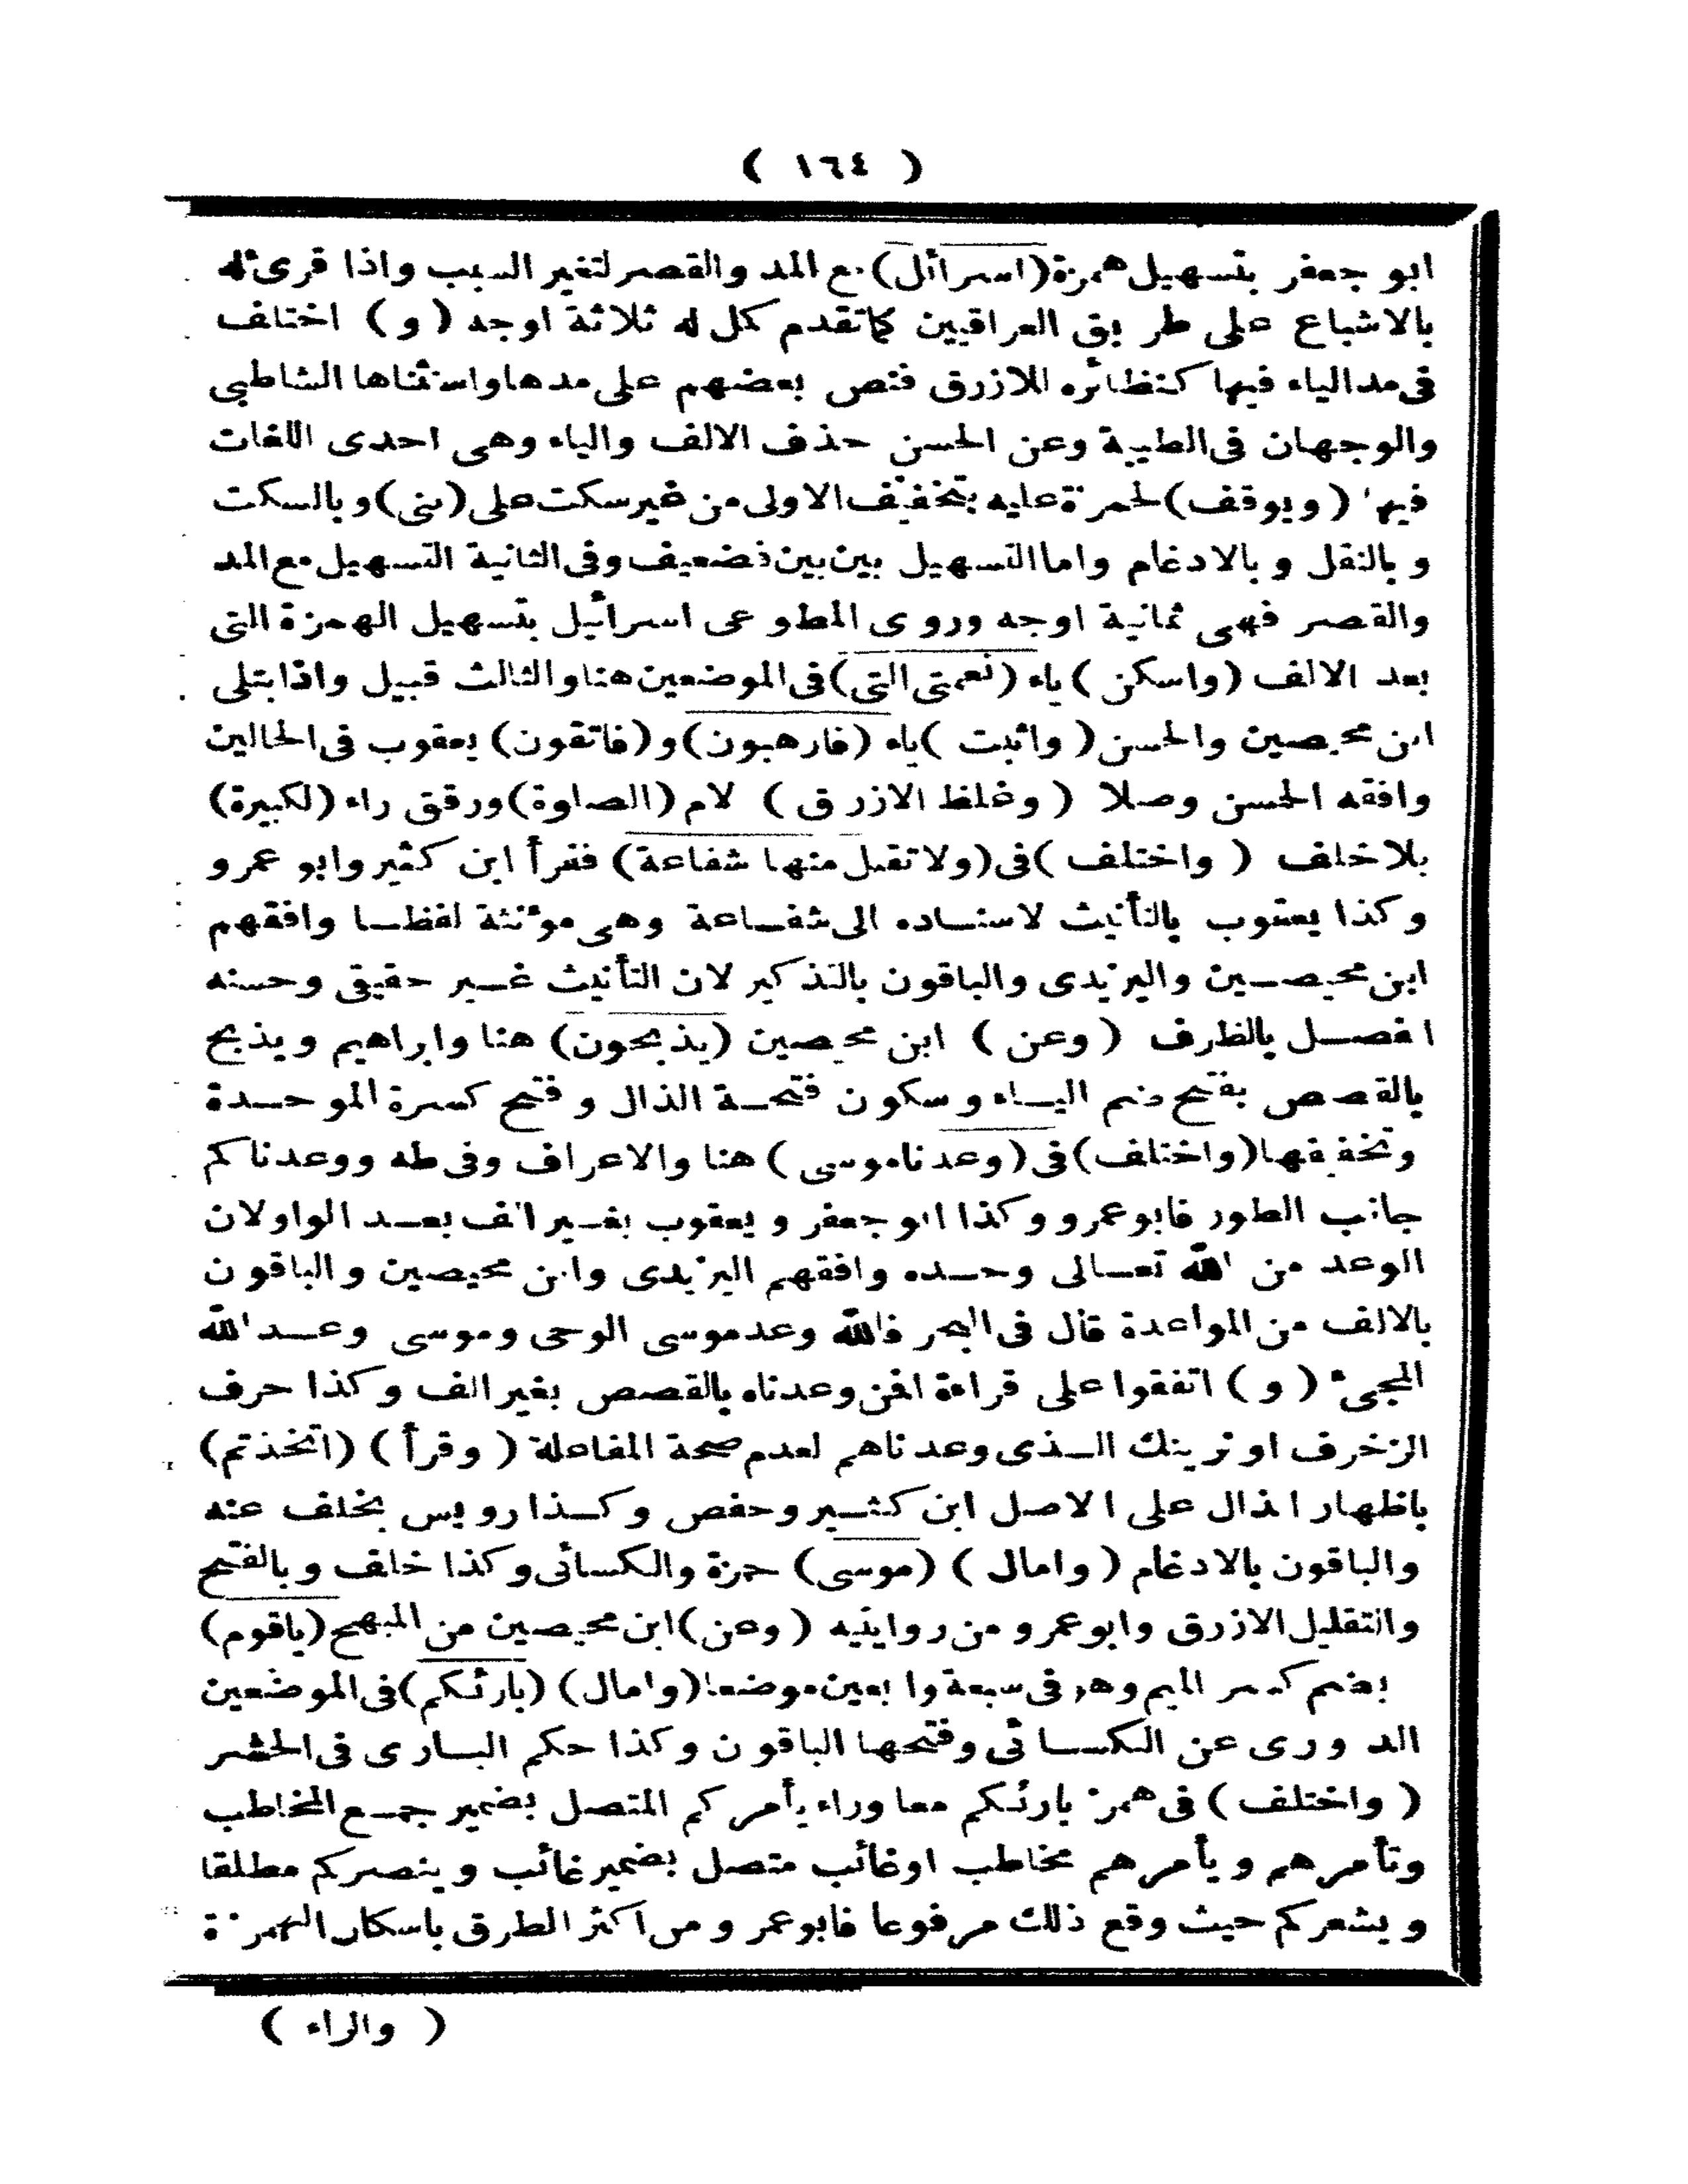 ( ١٦٤ )
ابو جعفر بتسهيل همزة (اسرائل) مع المد والقصر لتغير السبب واذا قرئ له
بالاشباع على طريق العراقيين كما تقدم كمل له ثلاثة اوجه ( و ) اختلف
فى مد الياء فيها كنظائره للازرق فنص بعضهم على مدها واستثناها الشاطبى
والوجهان فى الطيبة وعن الحسن حذف الالف والياء وهى احدى اللغات
فيها ( ويوقف ) لحمزة عليه بتخفيف الاولى من غير سكت على (بنى) وبالسكت
وبالنقل وبالادغام واما التسهيل بين بين فضعيف وفى الثانية التسهيل مع المد
والقصر فهى ثمانية اوجه وروى المطوعى اسرائيل بتسهيل الهمزة التى
بعد الالف (واسكن ) ياء (نعمتى التى) فى الموضعين هنا والثالث قبيل واذ ابتلى
ابن محيصين والحسن ( واثبت ) ياء (فارهبون) و (فاتقون) يعقوب فى الحالين
وافقه الحسن وصلا ( وغلظ الازرق ) لام (الصلوة) ورقق راء (لكبيرة)
بلا خلف ( واختلف ) فى (ولا تقبل منها شفاعة) فقرأ ابن كثير وابو عمرو
وكذا يعقوب بالتأنيث لاسناده الى شفاعة وهى مؤنثة لفظا وافقهم
ابن محيصين واليزيدى والباقون بالتذكير لان التأنيث غير حقيقى وحسنه
الفصل بالظرف ( وعن ) ابن محيصين (يذبحون) هنا وابراهيم ويذبح
بالقصص بفتح ضم الياء وسكون فتحة الذال وفتح كسرة الموحدة
وتخفيفها (واختلف) فى (وعدنا موسى ) هنا والاعراف وفى طه ووعدناكم
جانب الطور فابو عمرو وكذا ابو جعفر ويعقوب بغير الف بعد الواو لان
الوعد من الله تعالى وحده وافقهم اليزيدى وابن محيصين والباقون
بالالف من المواعدة قال فى البحر فالله وعد موسى الوحى وموسى وعد الله
المجئ ( و ) اتفقوا على قراءة افمن وعدناه بالقصص بغير الف وكذا حرف
الزخرف او نرينك الذى وعدناهم لعدم صحة المفاعلة ( وقرأ ) (اتخذتم)
باظهار الذال على الاصل ابن كثير وحفص وكذا رويس بخلف عنه
والباقون بالادغام ( وامال ) (موسى) حمزة والكسائى وكذا خلف وبالفتح
والتقليل الازرق وابو عمرو من روايتيه ( وعن ) ابن محيصين من المبهج (ياقوم)
بضم كسر الميم وهو فى سبعة واربعين موضعا (وامال) (بارئكم) فى الموضعين
الدورى عن الكسائى وفتحها الباقون وكذا حكم البارى فى الحشر
( واختلف ) فى همز بارئكم معا وراء يأمركم المتصل بضمير جمع المخاطب
وتأمرهم ويأمرهم مخاطب او غائب متصل بضمير غائب وينصركم مطلقا
ويشعركم حيث وقع ذلك مرفوعا فابو عمرو من اكثر الطرق باسكان الهمزة
( والراء )